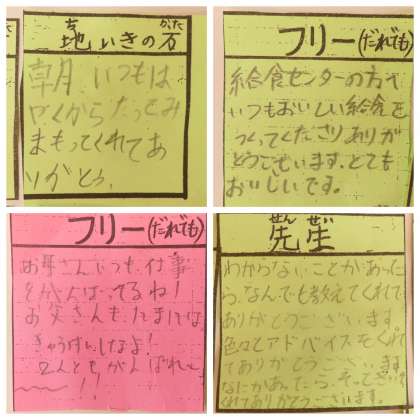 地いきの方
ち
がた
朝、いつもは
やくからたってみ
まもってくれてあ
りがとう。
フリー(だれでも)
給食センターの方々
いつもおいしい給食を
つくってくださりありが
とうございます。とても
おいしいです。
フリー(だれでも)
お母さんいつも仕事
をがんばってるね!
お父さんも、たまには、
きゅうけいしなよ!
2人ともがんばれー
!!
先生
せん
わからないことがあった
ら、なんでも教えてくれて
ありがとうございます。
色々とアドバイスをくれ
てありがとうございます。
なにかあったら、そっこうでき
てくれてありがとうございます。